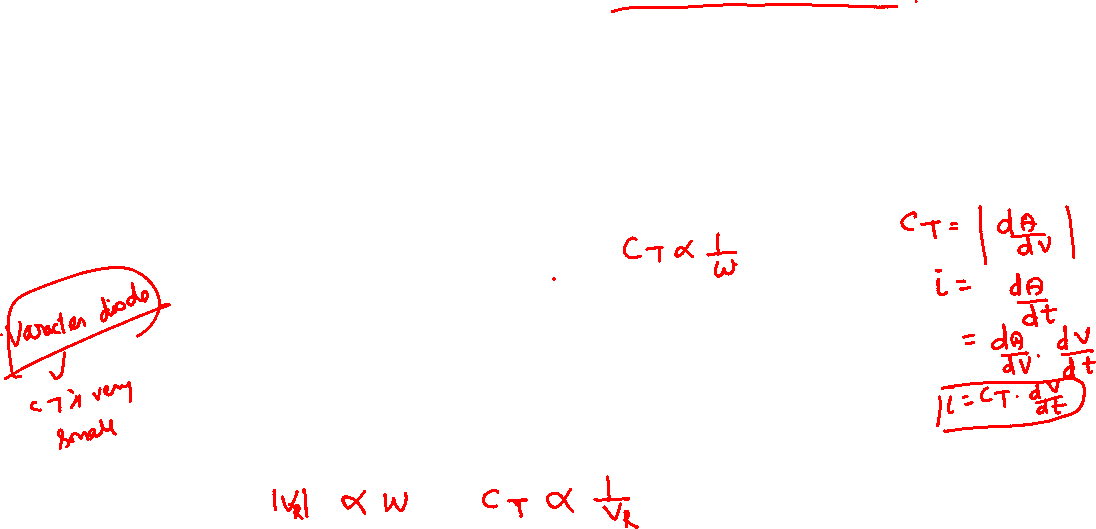 C_T ∝ 1/W
C_T = |dQ/dV|
i = dQ/dt
= dQ/dV · dV/dt
i = C_T · dV/dt
Varactor diode
C_T is very
small
|V_R| ∝ W   C_T ∝ 1/V_R